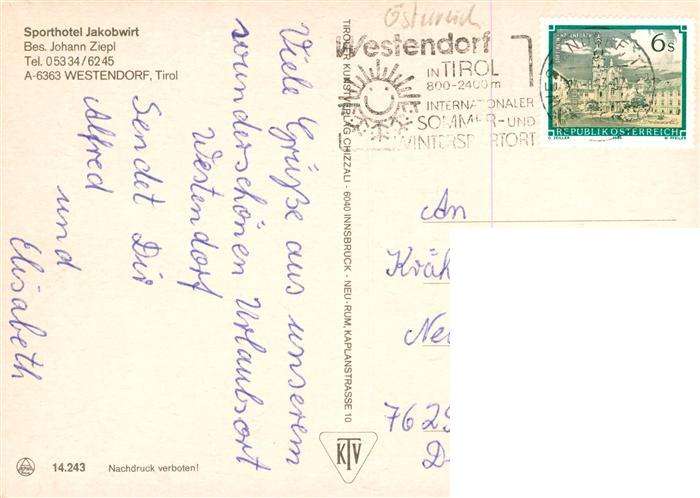 Sporthotel Jakobwirt
Bes. Johann Ziepl
Tel. 05334/6245
A-6363 WESTENDORF, Tirol
Viele Grüße aus unserem
wunderschönen Urlaubsort
Westendorf
Sendet Dir
Alfred
und
Elisabeth
14.243
Nachdruck verboten!
TIROLER KUNSTVERLAG CHIZZALI - 6040 INNSBRUCK - NEU-RUM, KAPLANSTRASSE 10
KTV
Österreich
Westendorf
IN TIROL
800-2400m
INTERNATIONALER
SOMMER- UND
WINTERSPORTORT
6s
REPUBLIK ÖSTERREICH
An
Kräh
Ne
762
D-